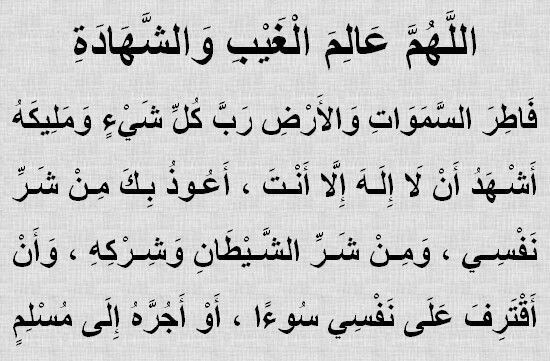 اللَّهُمَّ عَالِمَ الْغَيْبِ وَالشَّهَادَةِ
فَاطِرَ السَّمَوَاتِ وَالأَرْضِ رَبَّ كُلِّ شَيْءٍ وَمَلِيكَهُ
أَشْهَدُ أَنْ لَا إِلَهَ إِلَّا أَنْتَ ، أَعُوذُ بِكَ مِنْ شَرِّ
نَفْسِي ، وَمِنْ شَرِّ الشَّيْطَانِ وَشِرْكِهِ ، وَأَنْ
أَقْتَرِفَ عَلَى نَفْسِي سُوءًا ، أَوْ أَجُرَّهُ إِلَى مُسْلِمٍ